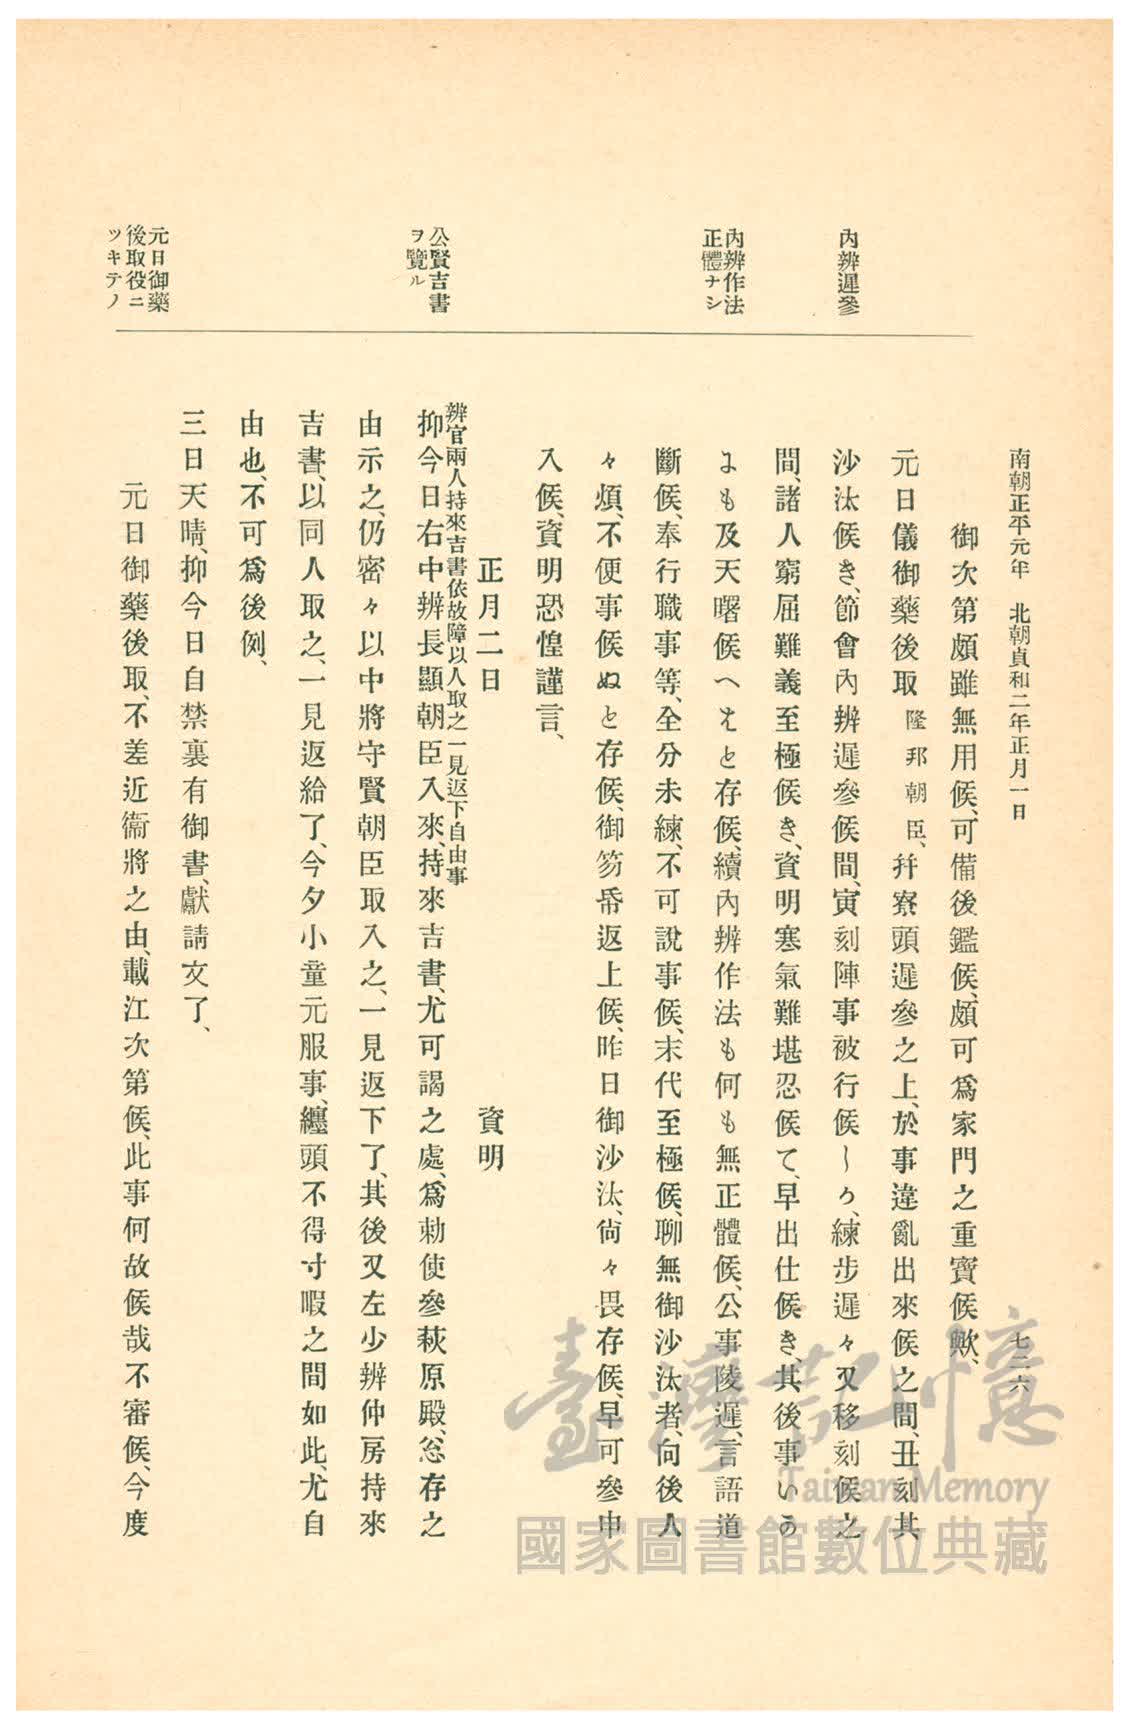 南朝正平元年　北朝貞和二年正月一日
七二六
內辨遲參
內辨作法
正體ナシ
公賢吉書
ヲ覽ル
元日御藥
後取役ニ
ツキテノ
御次第頗雖無用候、可備後鑑候、頗可爲家門之重寶候歟、
元日儀御藥後取隆邦朝臣、幷寮頭遲參之上、於事違亂出來候之間、丑刻其
沙汰候き、節會內辨遲參候間、寅刻陣事被行候しゟ、練步遲々又移刻候之
間、諸人窮屈難義至極候き、資明寒氣難堪忍候て、早出仕候き、其後事いゟ
よも及天曙候へえと存候、續內辨作法も何も無正體候、公事陵遲、言語道
斷候、奉行職事等、全分未練、不可說事候、末代至極候、聊無御沙汰者、向後人
々煩、不便事候ぬと存候、御笏帋返上候、昨日御沙汰、尙々畏存候、早可參申
入候、資明恐惶謹言、
正月二日　資明
辨官兩人持來吉書依故障以人取之一見返下自由事
抑今日右中辨長顯朝臣入來、持來吉書、尤可謁之處、爲勅使參萩原殿、忩存之
由示之、仍密々以中將守賢朝臣取入之、一見返下了、其後又左少辨仲房持來
吉書、以同人取之、一見返給了、今夕小童元服事、纏頭不得寸暇之間如此、尤自
由也、不可爲後例、
三日天晴、抑今日自禁裏有御書、獻請文了、
元日御藥後取、不差近衞將之由、載江次第候、此事何故候哉不審候、今度
臺灣記憶
Taiwan Memory
國家圖書館數位典藏